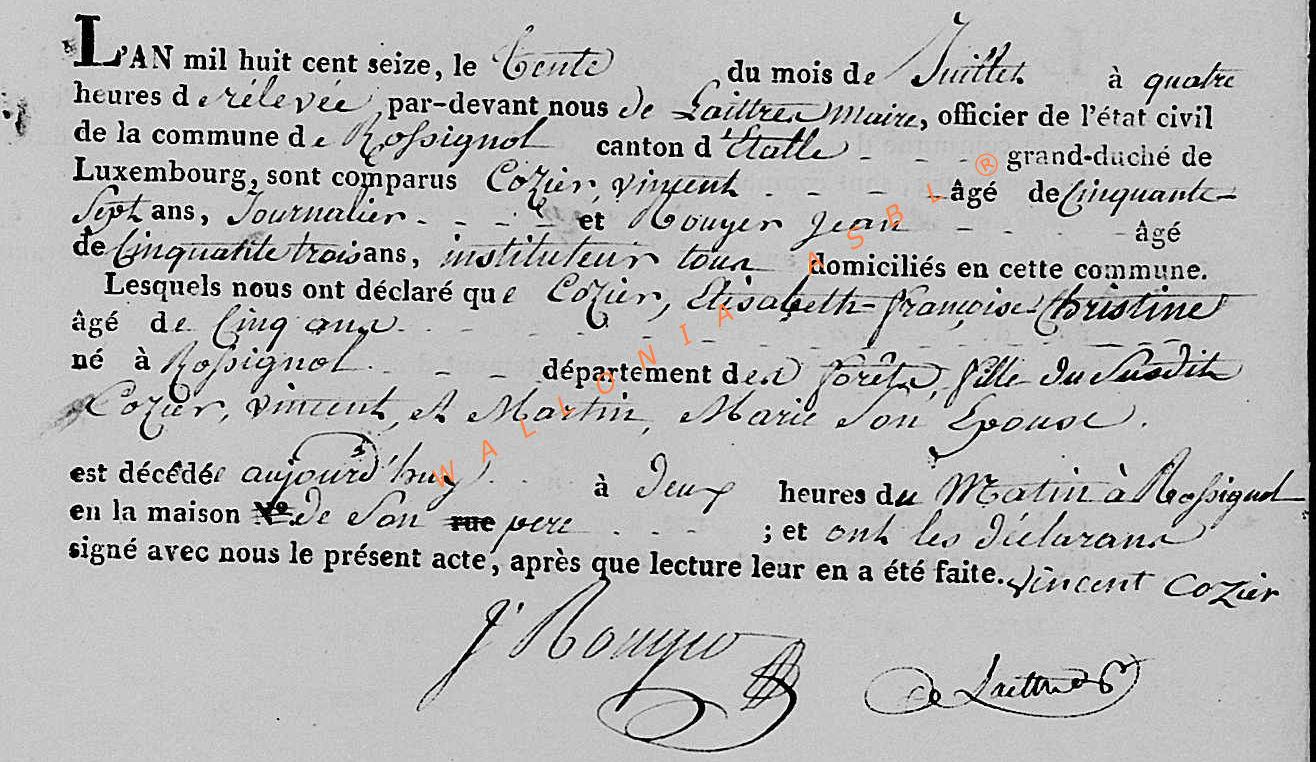 L'AN mil huit cent seize, le trente du mois de Juillet à quatre
heures de rélevée, par-devant nous de Laittres maire, officier de l'état civil
de la commune de Rossignol canton d'Etalle - - - grand-duché de
Luxembourg, sont comparus Cozier, vincent - - - âgé de Cinquante-
Sept ans, Journalier - - - et Rouyer Jean - - - - âgé
de Cinquante trois ans, instituteur tous domiciliés en cette commune.
Lesquels nous ont déclaré que Cozier, Elisabeth-françoise-Christine
âgé de Cinq ans - - - - - - - - - -
né à Rossignol - - - département des forêts, fille du Susdit
Cozier, vincent, et Martin, Marie Son Epouse.
est décédée aujourd'huy - - à deux heures du Matin à Rossignol
en la maison N.o de Son rue pere - - - ; et ont les déclarans
signé avec nous le présent acte, après que lecture leur en a été faite. vincent Cozier
J. Rouyer de Laittres
WALLONIA ASBL ®